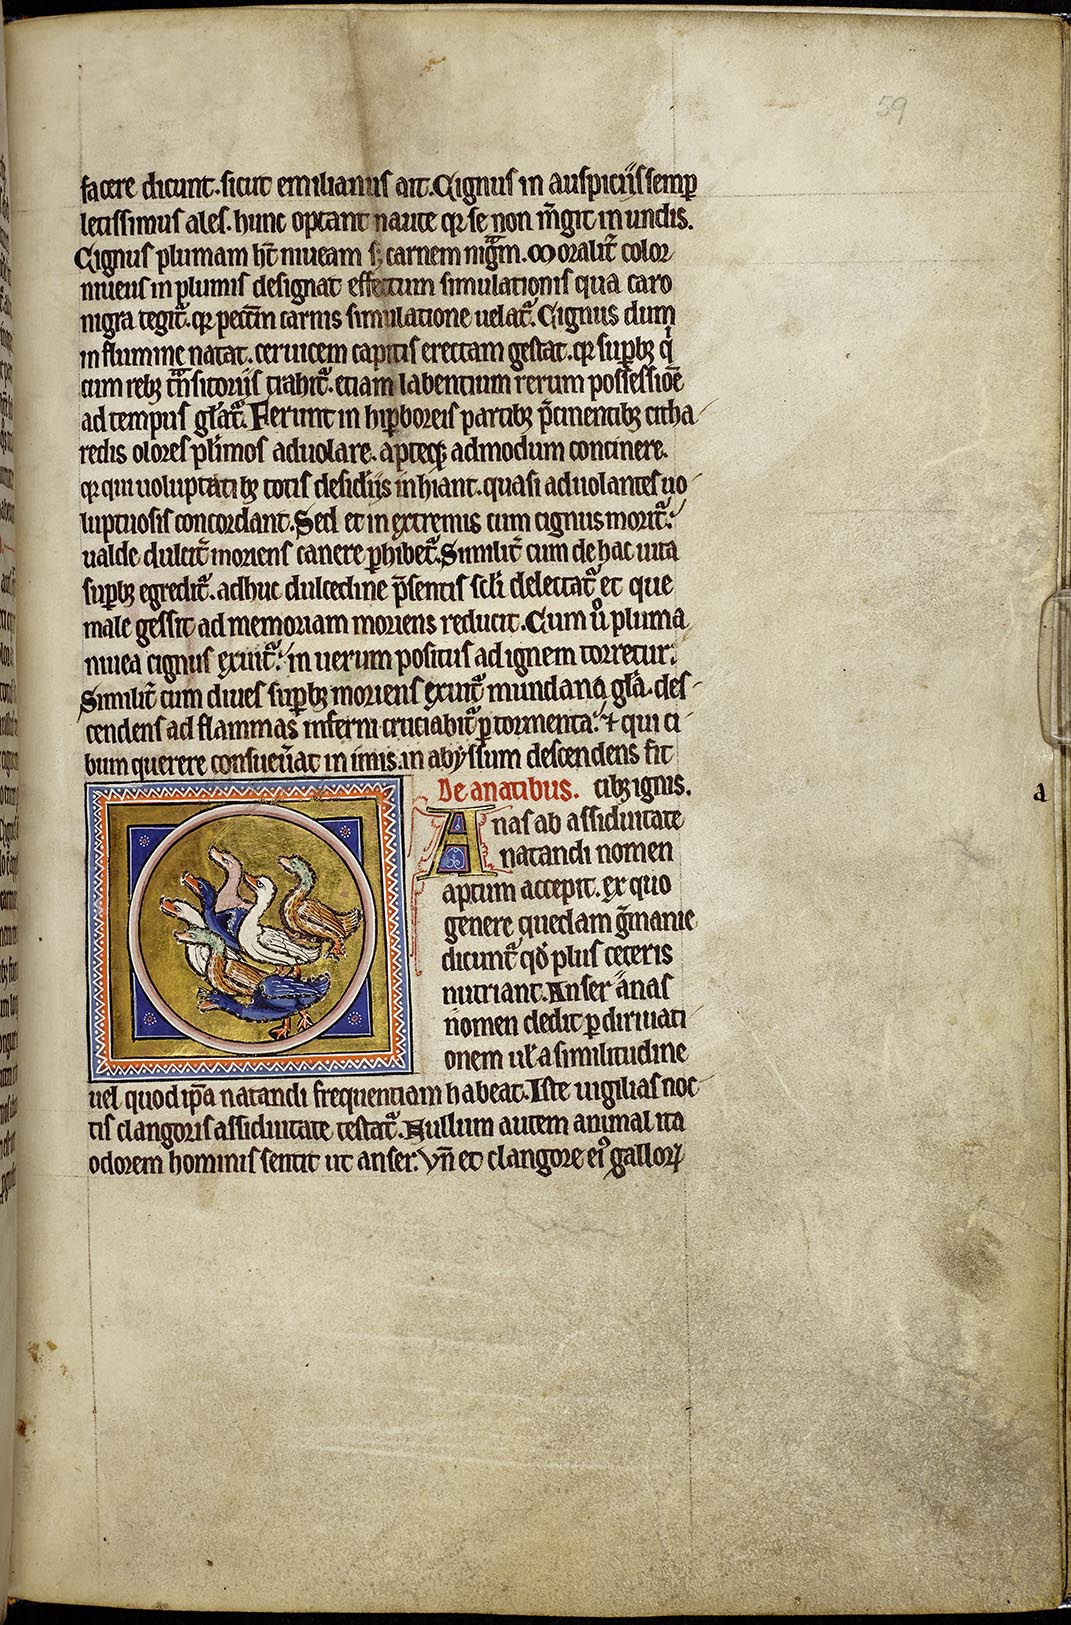 59
facere dicunt. sicut emilianus ait. Cignus in auspiciis semp̲
letissimus ales. hunc optant naute qr se non m̄git in undis.
Cignus plumam ht̄ niueam sꝫ carnem nigͣm. Moralit̄ color
niueus in plumis designat effectum simulationis qua caro
nigra tegit᷑. qr pecc̄m carnis simulatione uelat᷑. Cignus dum
in flumine natat. ceruicem capitis erectam gestat. qr sup̲bꝫ qͥ
cum rebꝫ tͣnsitoriis trahit᷑. etiam labentium rerum possessiōe
ad tempus gl̄at᷑. Ferunt in hip̲boreis partibꝫ p̄cinentibꝫ citha
redis olores pl̄imos aduolare. apteqꝫ admodum concinere.
qr qui uoluptatibꝫ totis desidiis inhiant. quasi aduolantes uo
luptuosis concordant. Sed et in extremis cum cignus morit᷑.
ualde dulcit̄ moriens canere p̲hibet᷑. Similit̄ cum de hac uita
sup̲bꝫ egredit᷑. adhuc dulcedine p̄sentis scl̄i delectat᷑ et que
male gessit ad memoriam moriens reducit. Cum uͦ pluma
niuea cignus exuit᷑. in uerum positus ad ignem torretur.
Similit̄ cum diues sup̲bꝫ moriens exuit᷑ mundana gl̄a. des
cendens ad flammas inferni cruciabit᷑ p̲ tormenta. ⁊ qui ci
bum querere consueūat in imis. in abyssum descendens fit
De anatibus. cibꝫ ignis.
Anas ab assiduitate
natandi nomen
aptum accepit. ex quo
genere quedam g̃manie
dicunt᷑ qđ plus ceteris
nutriant. Anser anas
nomen dedit p̲ diriuati
onem ul̄ a similitudine
uel quod ip̄a natandi frequentiam habeat. Iste uigilias noc
tis clangoris assiduitate testat᷑. Nullum autem animal ita
odorem hominis sentit ut anser. Vn̄ et clangore eiꝰ galloꝝ
a